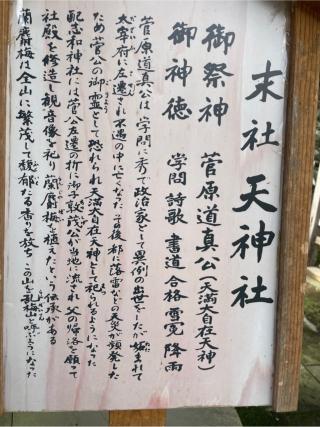 末社 天神社
御祭神 菅原道真公(天満大自在天神)
御神徳 学問 詩歌 書道 合格 雪冤 降雨
菅原道真公は学問に秀で政治家として異例の出世をしたが妬まれて
太宰府に左遷され不遇の中に亡くなった その後都に落雷などの天災が頻発した
ため菅公の御霊として恐れられ天満大自在天神として祀られるようになった
配志和神社には菅公左遷の折に御子敦茂公が当地に流され父の帰洛を願って
社殿を修造し観音像を祀り蘭麝梅を植えたという伝承がある
蘭麝梅は全山に繁茂して馥郁たる香りを放ち この山を乱梅山と呼ぶようになった